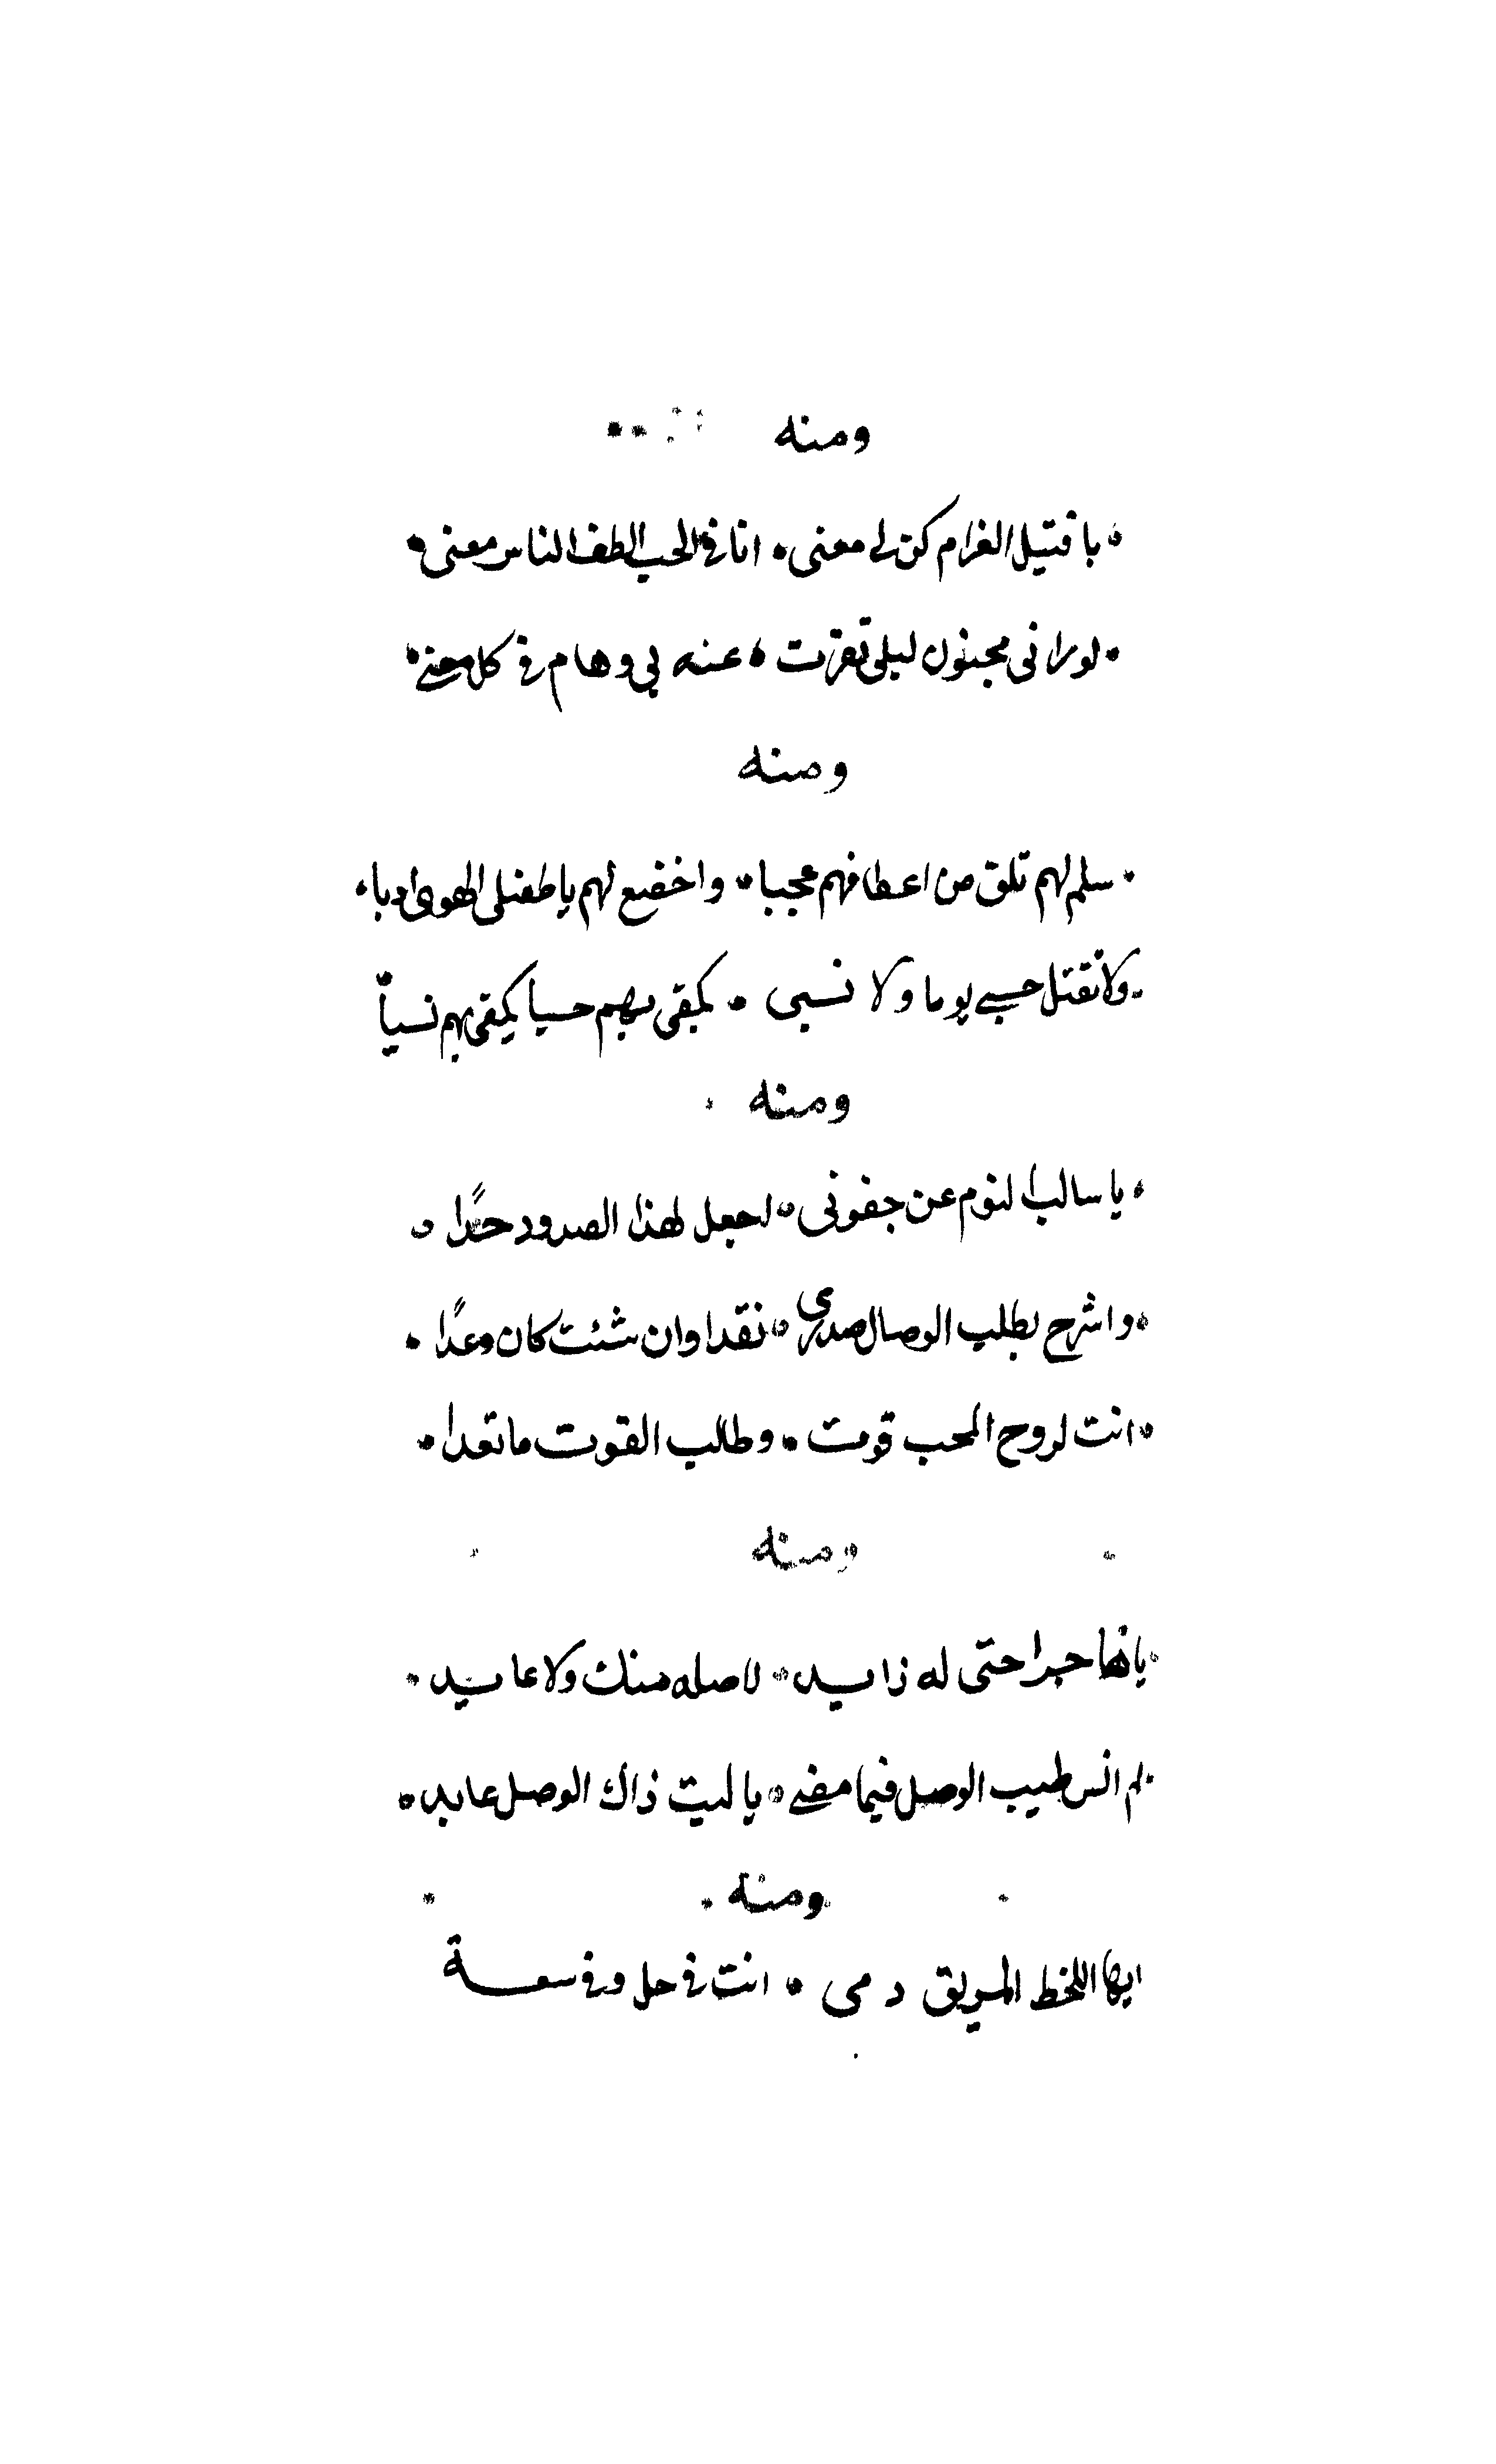 ومنه
يا قتيل الغرام كن لي معنى • انا في الحب الطف الناس معنى •
لو رانى مجنون ليلى تعزت • عنه بي وهام في كل معنى
ومنه
سلم لهم تلق من اعطافهم عجبا • واخضع لهم يا طفيلى الهوى ادبا •
ولا تقتل حسبي يوما ولا نسبى • يبقى بهم حسبا يبقى بهم نسبا
ومنه
يا سالب النوم عن جفونى • اجعل لهذا الصدود حدًا •
واشرح بطيب الوصال صدرى • نقدا وان شئت كان وعدًا •
انت لروح المحب قوت • وطالب القوت ما تعدا •
ومنه
يا هاجرا حتى له زايد • لا صله منك ولا عايد •
لم انس طيب الوصل فيما مضى • يا ليت ذاك الوصل عايد •
ومنه
ايها اللحظ المريق دمى • انت في حل وفي سعة